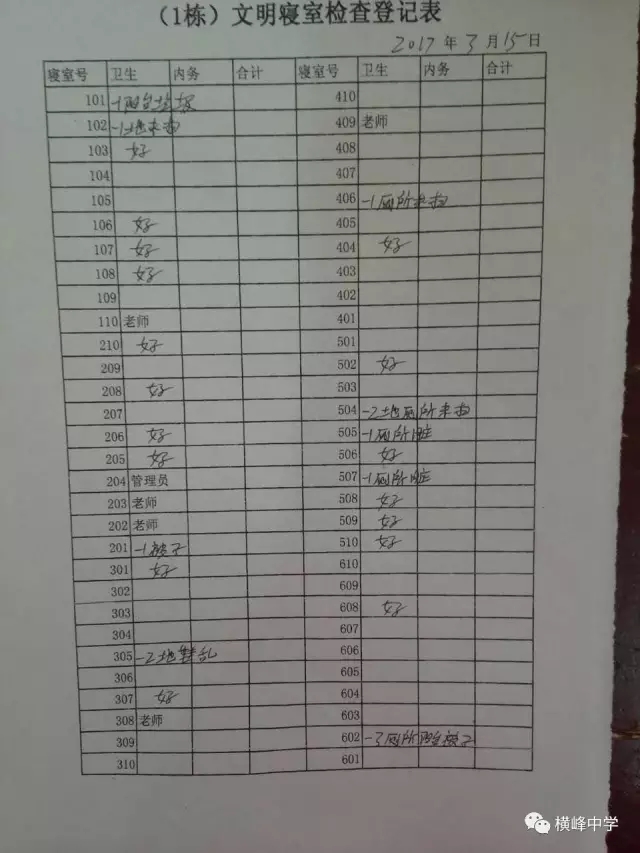 （1栋）文明寝室检查登记表
2017年3月15日
寝室号 卫生 内务 合计 寝室号 卫生 内务 合计
101 -1阳台垃圾 410
102 -1地未扫 409 老师
103 好 408
104 407
105 406 -1厕所未扫
106 好 405
107 好 404 好
108 好 403
109 402
110 老师 401
210 好 501
209 502 好
208 好 503
207 504 -2地厕所未扫
206 好 505 -1厕所脏
205 好 506 好
204 管理员 507 -1厕所脏
203 老师 508 好
202 老师 509 好
201 -1被子 510 好
301 好 610
302 609
303 608 好
304 607
305 -2地鞋乱 606
306 605
307 好 604
308 老师 603
309 602 -3厕所阳台被子
310 601
横峰中学